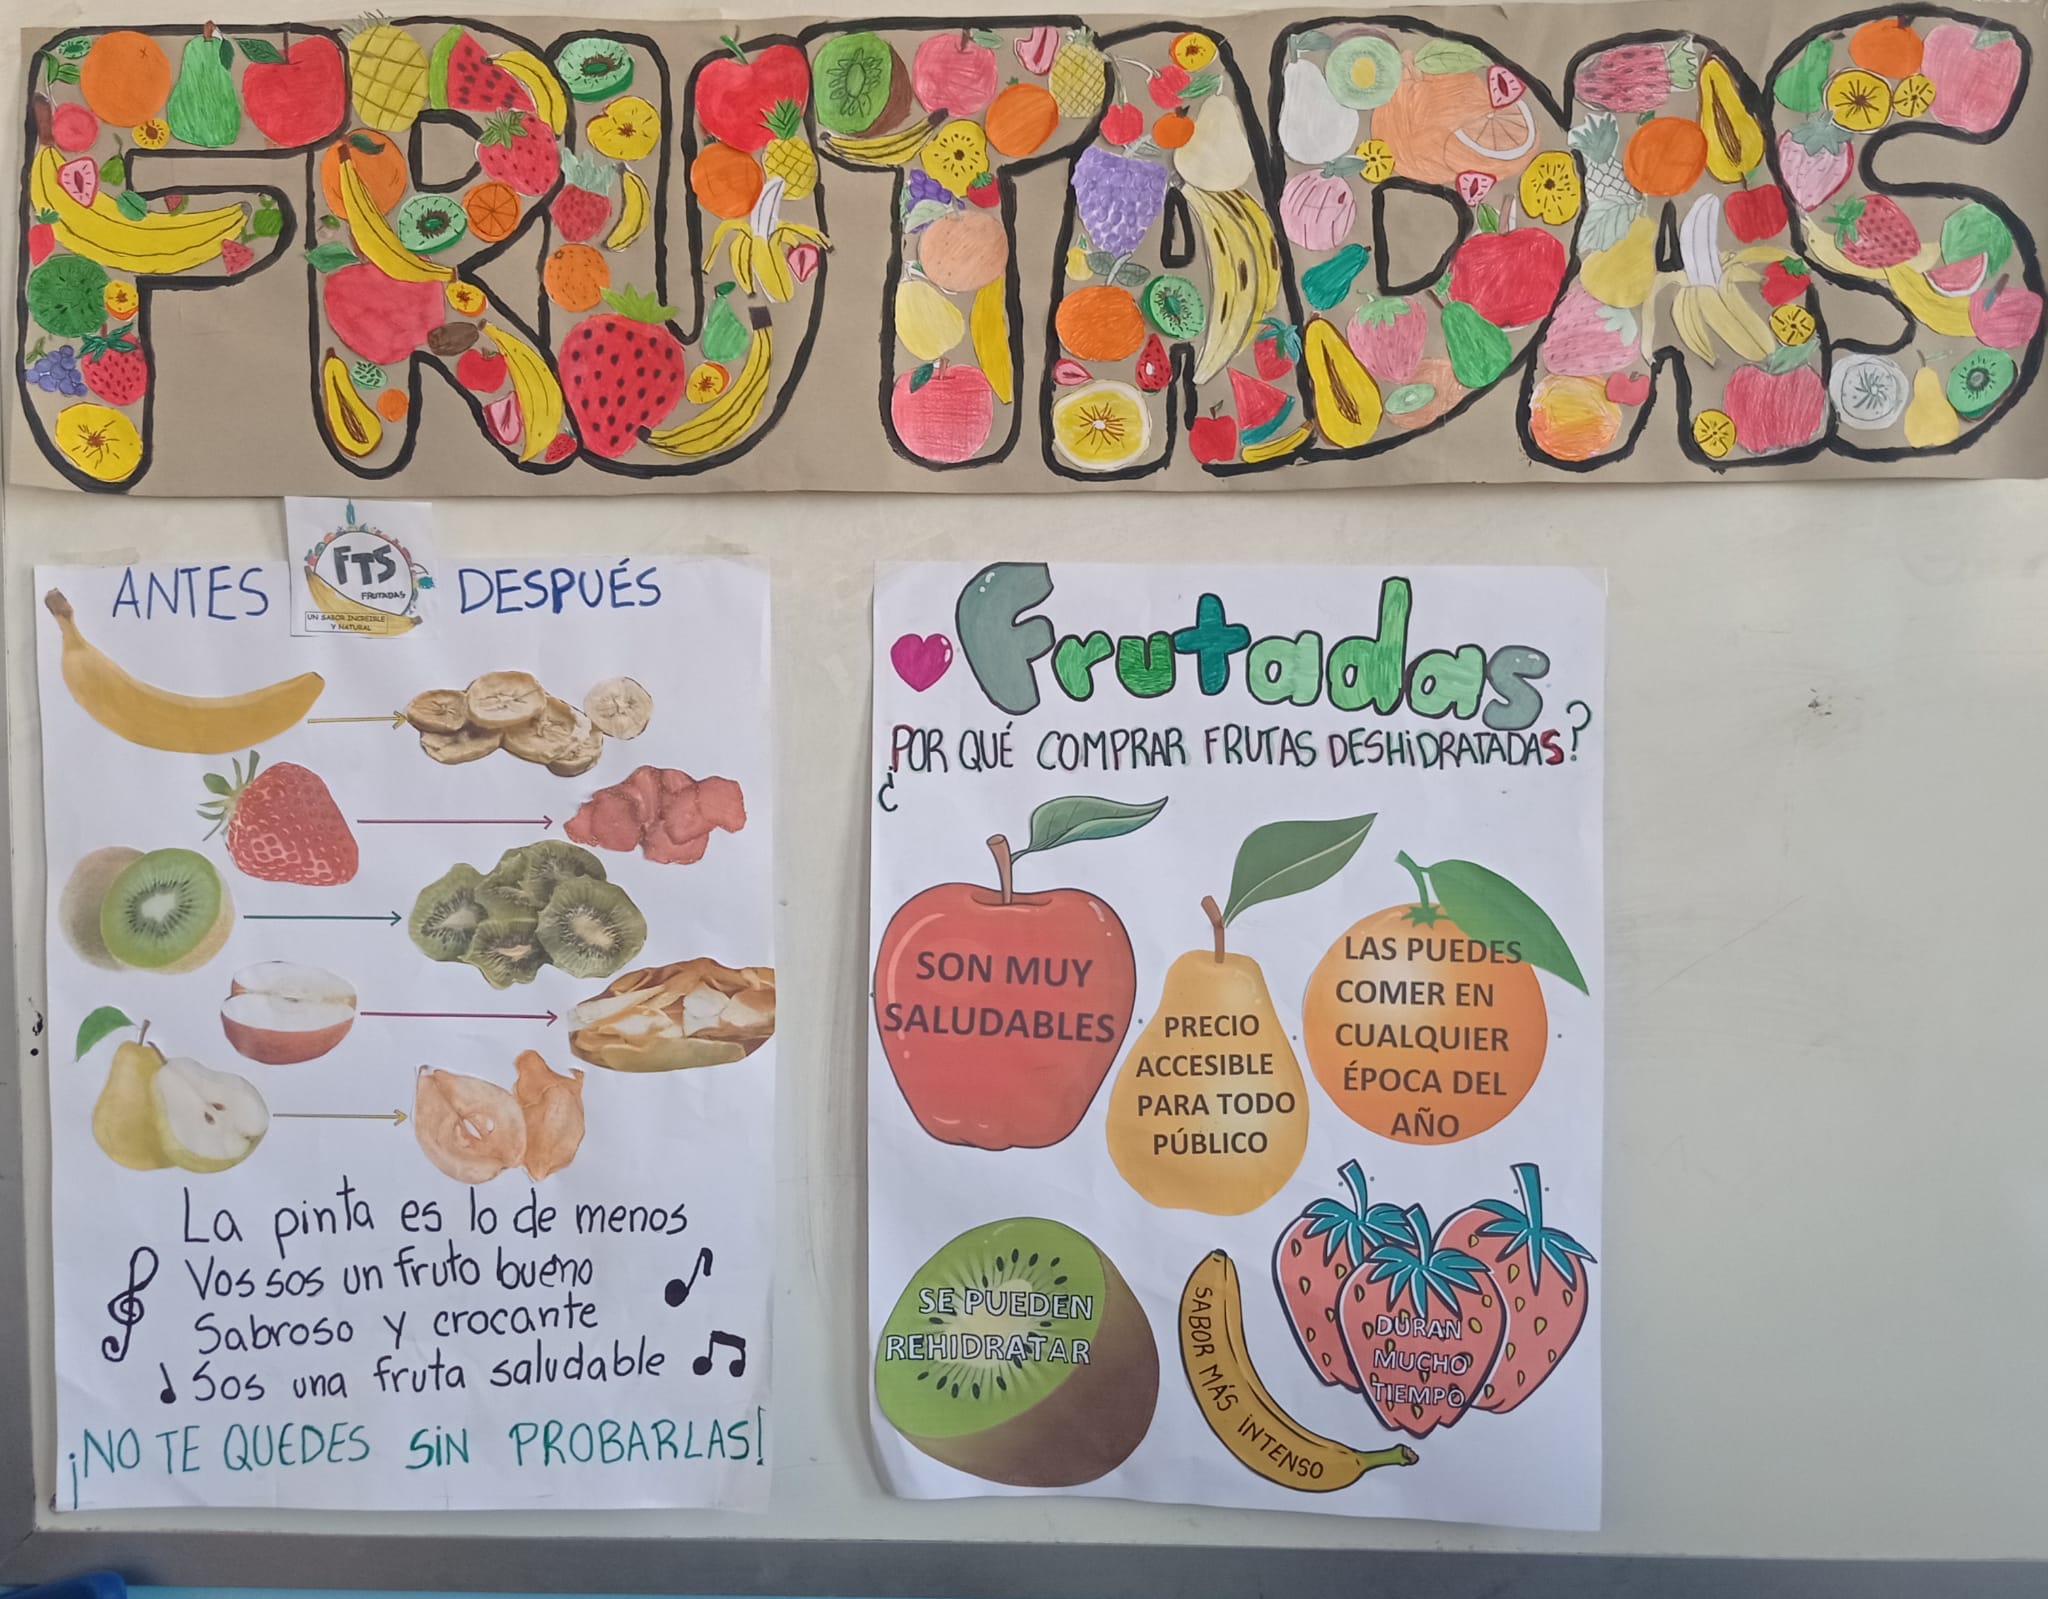 FRUTADAS
ANTES
DESPUÉS
FTS
FRUTADAS
UN SABOR INCREIBLE
Y NATURAL
La pinta es lo de menos
Vos sos un fruto bueno
Sabroso y crocante
Sos una fruta saludable
¡NO TE QUEDES SiN PROBARLAS!
Frutadas
¿POR QUÉ COMPRAR FRUTAS DESHiDRATADAS?
SON MUY
SALUDABLES
PRECIO
ACCESIBLE
PARA TODO
PÚBLICO
LAS PUEDES
COMER EN
CUALQUIER
ÉPOCA DEL
AÑO
SE PUEDEN
REHIDRATAR
SABOR MÁS iNTENSO
DURAN
MUCHO
TIEMPO